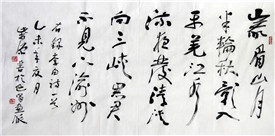 峩眉山月
半輪秋影入
平羌江水
流夜發清溪
向三峽思君
不見下渝州
右錄李白詩
乙未年夏月